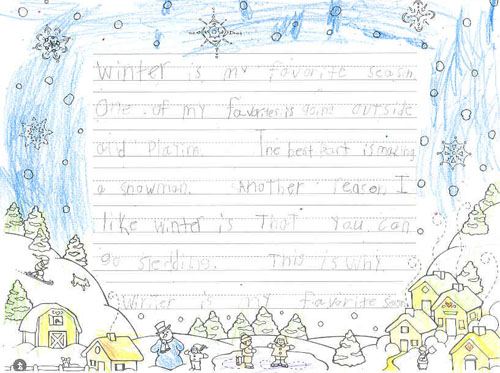 Winter is my favorite seasin.
One of my favorites is going outside
and Plaiing. The best Part is making
a snowman. Another reason I
like winter is That You can
go sledding. This is why
Winter is my favorite seasin